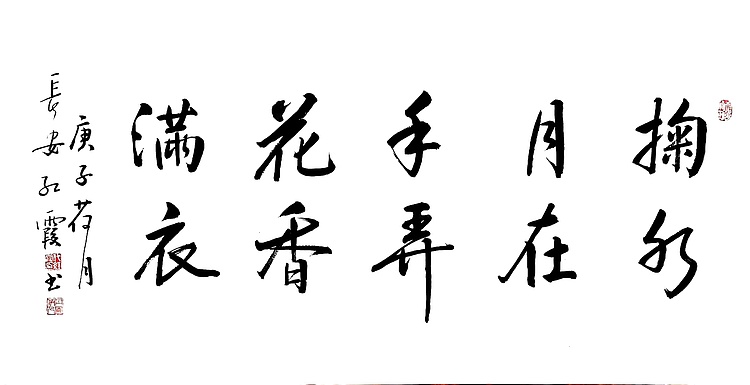 掬水
月在
手弄
花香
满衣
庚子荷月
長安紅霞書